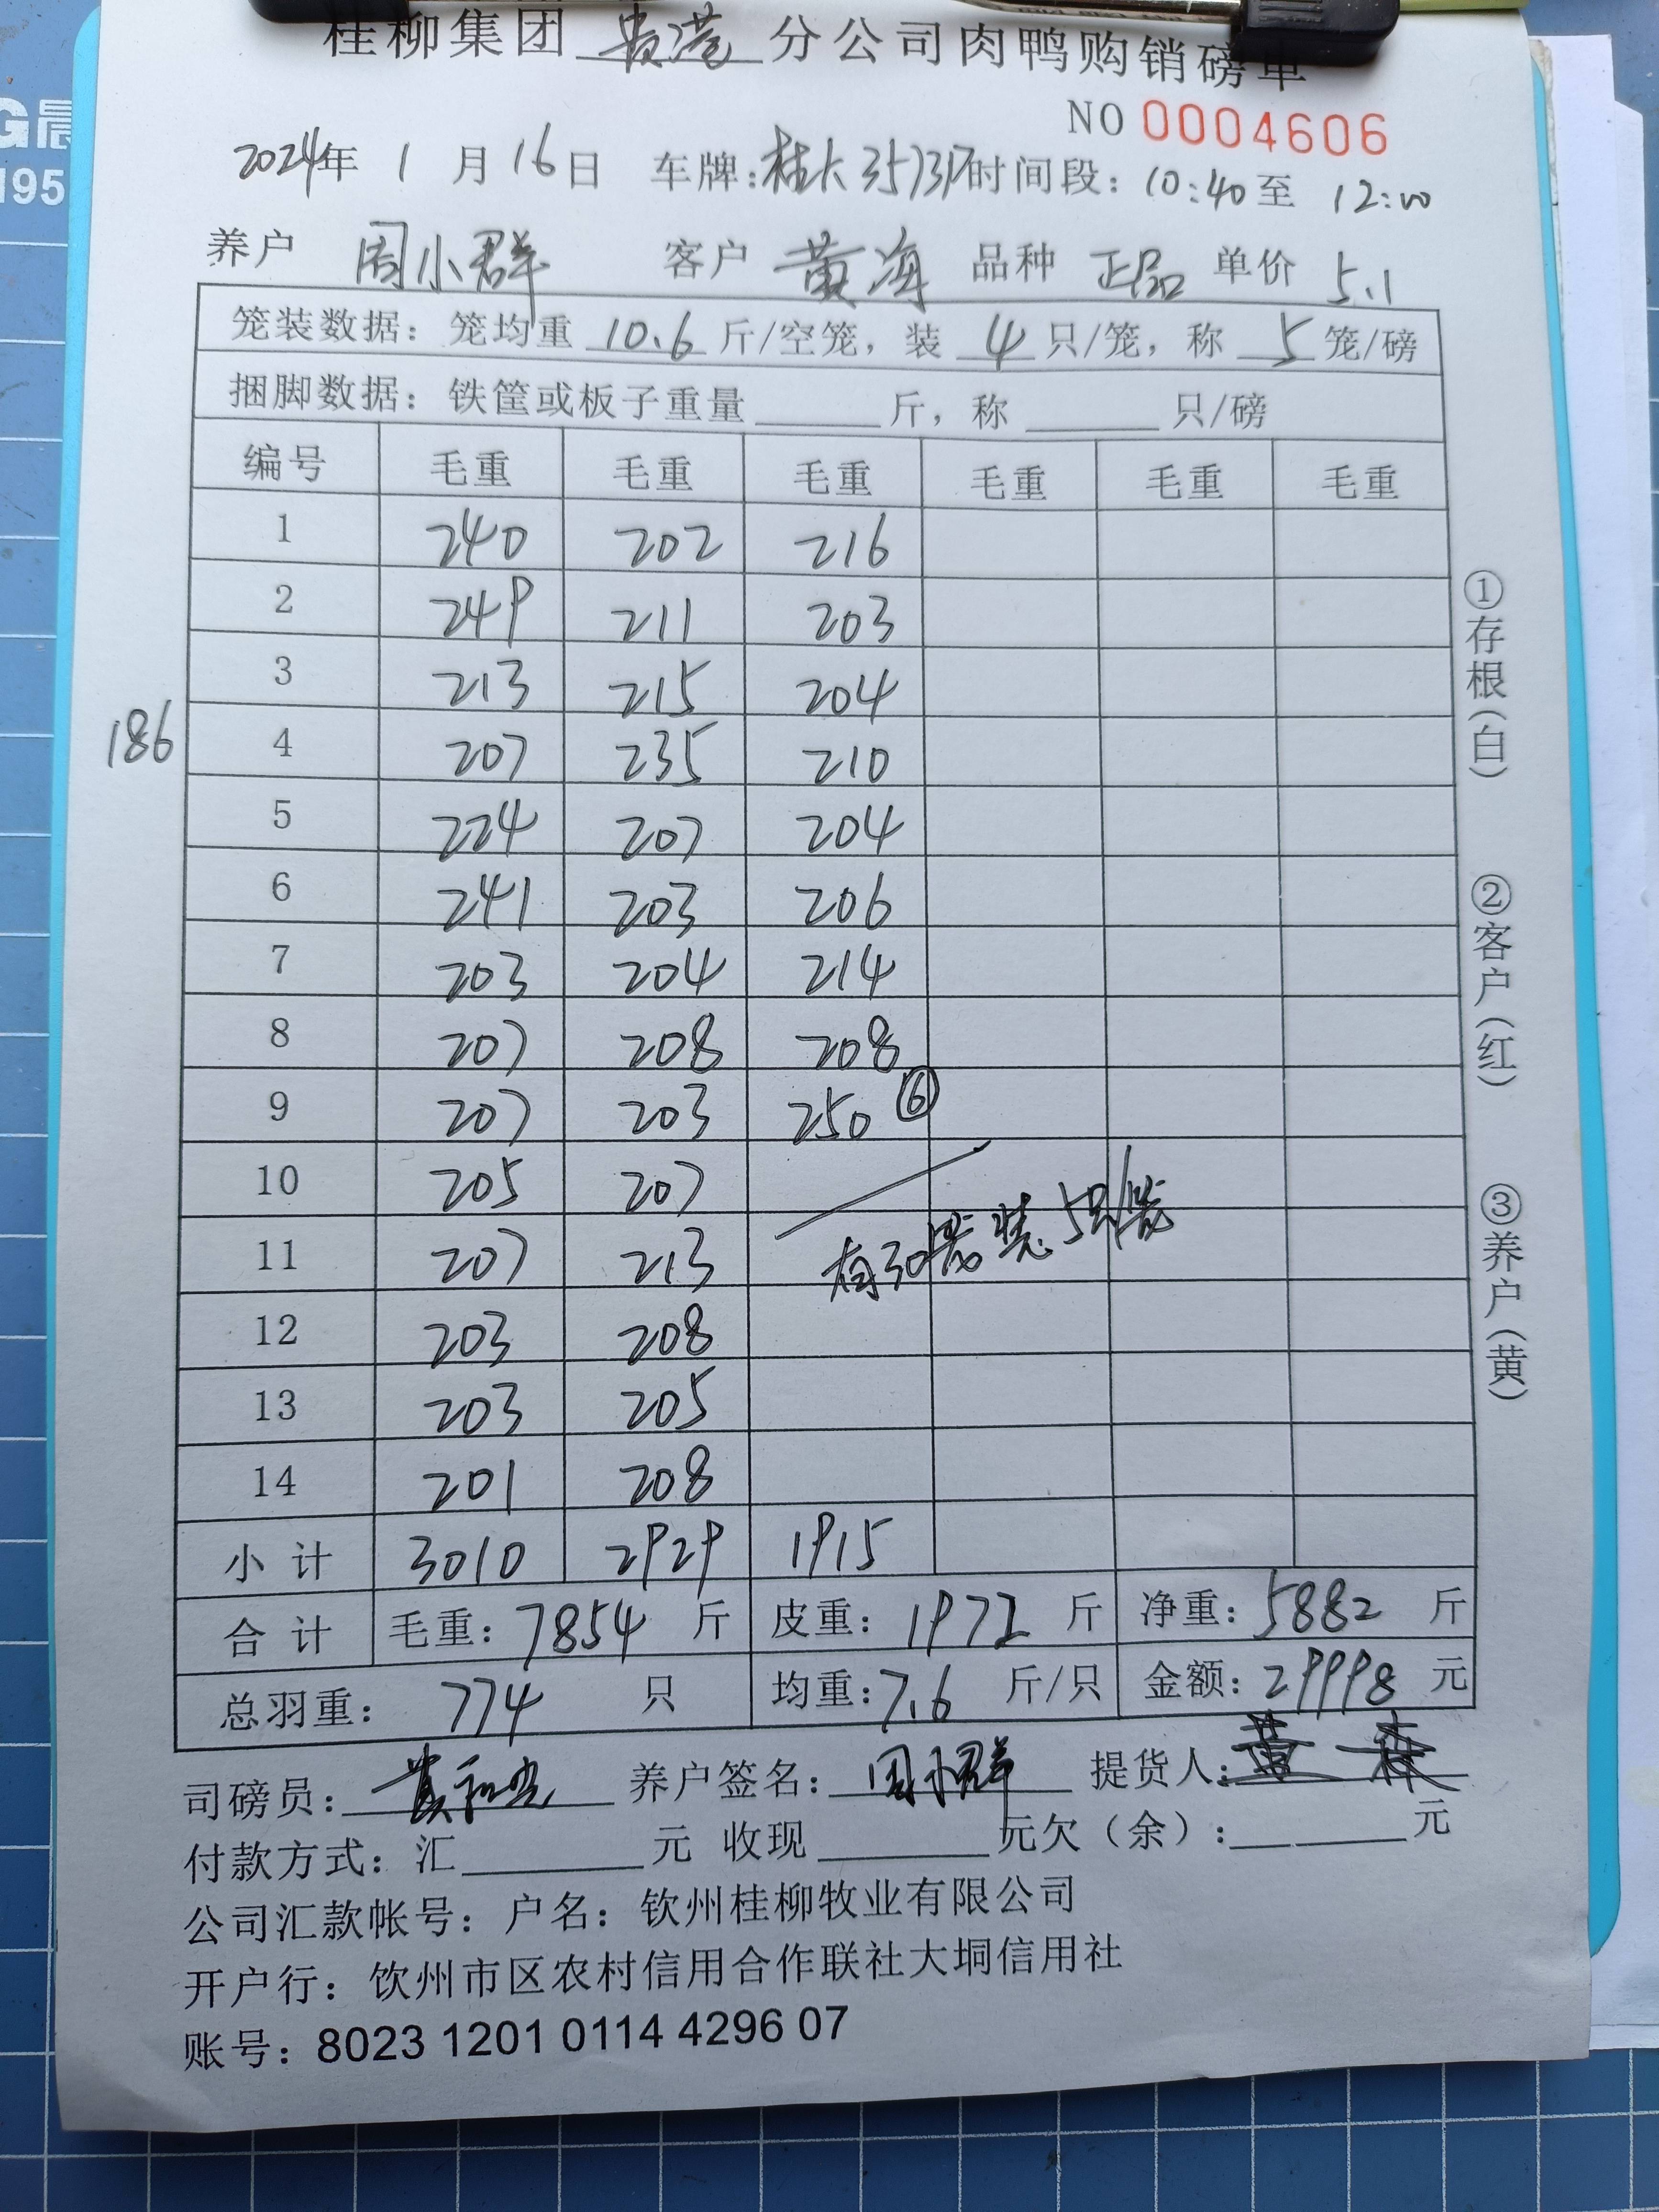 G晨
195
桂柳集团 贵港 分公司肉鸭购销磅单
NO 0004606
2024年 1 月 16 日 车牌: 时间段: 10:40 至 12:00
养户 周小群 客户 黄海 品种 正品 单价 5.1
笼装数据: 笼均重 10.6 斤/空笼, 装 4 只/笼, 称 5 笼/磅
捆脚数据: 铁筐或板子重量 斤, 称 只/磅
编号 毛重 毛重 毛重 毛重 毛重 毛重
1 240 202 216
2 249 211 203
3 213 215 204
186
4 207 235 210
5 224 207 204
6 241 203 206
7 203 204 214
8 207 208 208
9 207 203 250 ⑥
10 205 207
11 207 213
有30笼装5只/笼
12 203 208
13 203 205
14 201 208
小 计 3010 2929 1915
合 计 毛重: 7854 斤 皮重: 1972 斤 净重: 5882 斤
总羽重: 774 只 均重: 7.6 斤/只 金额: 29998 元
司磅员: 养户签名: 周小群 提货人: 黄 森
付款方式: 汇 元 收现 元欠(余): 元
公司汇款帐号: 户名: 钦州桂柳牧业有限公司
开户行: 钦州市区农村信用合作联社大垌信用社
账号: 8023 1201 0114 4296 07
①存根(白)
②客户(红)
③养户(黄)